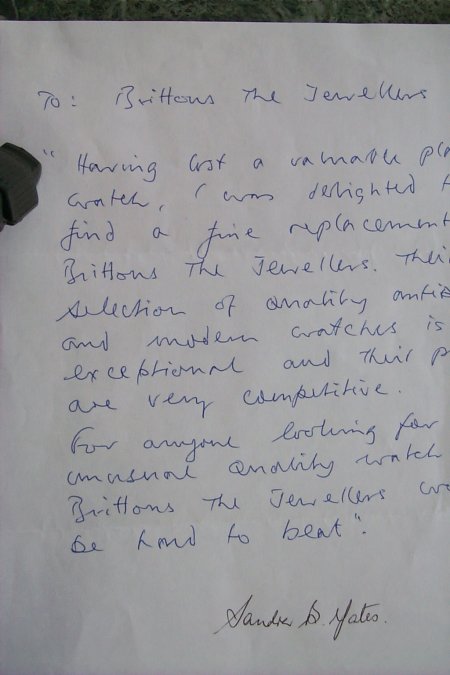 To: Brittons The Jewellers
"Having lost a valuable pla
watch, I was delighted t
find a fine replacement
Brittons The Jewellers. Thei
selection of quality antiq
and modern watches is
exceptional and their p
are very competitive.
For anyone looking for
unusual quality watch
Brittons The Jewellers wo
be hard to beat".
Sandra D. Yates.